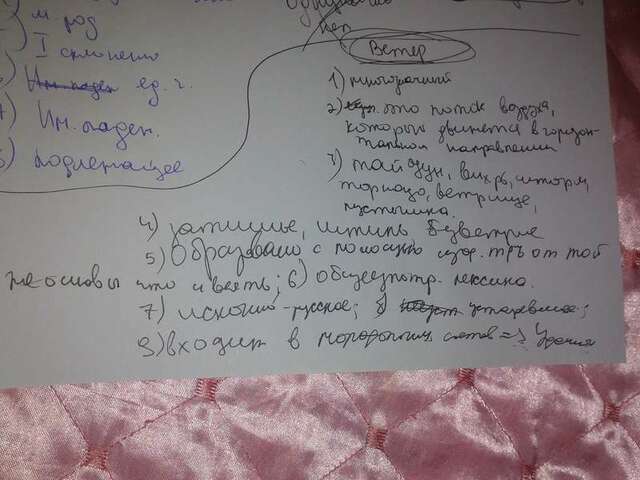 м. род
I склонение
ед. ч.
Им. падеж.
подлежащее
Ветер
1) многозначный
2) это поток воздуха,
который движется в горизон-
тальном направлении
3) тайфун, вихрь, шторм,
торнадо, ветрище,
4) затишье, штиль безветрие
5) Образовано с помощью от той
же основы что и веять; 6) общеупотр. лексика.
7) исконно-русское; 8) устаревшее;
9) входит в